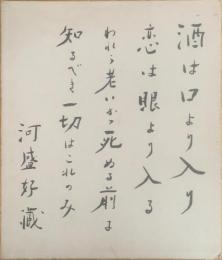 酒は口より入り
恋は眼より入る
われら老いかつ死める前に
知るべき一切はこれのみ
河盛好蔵